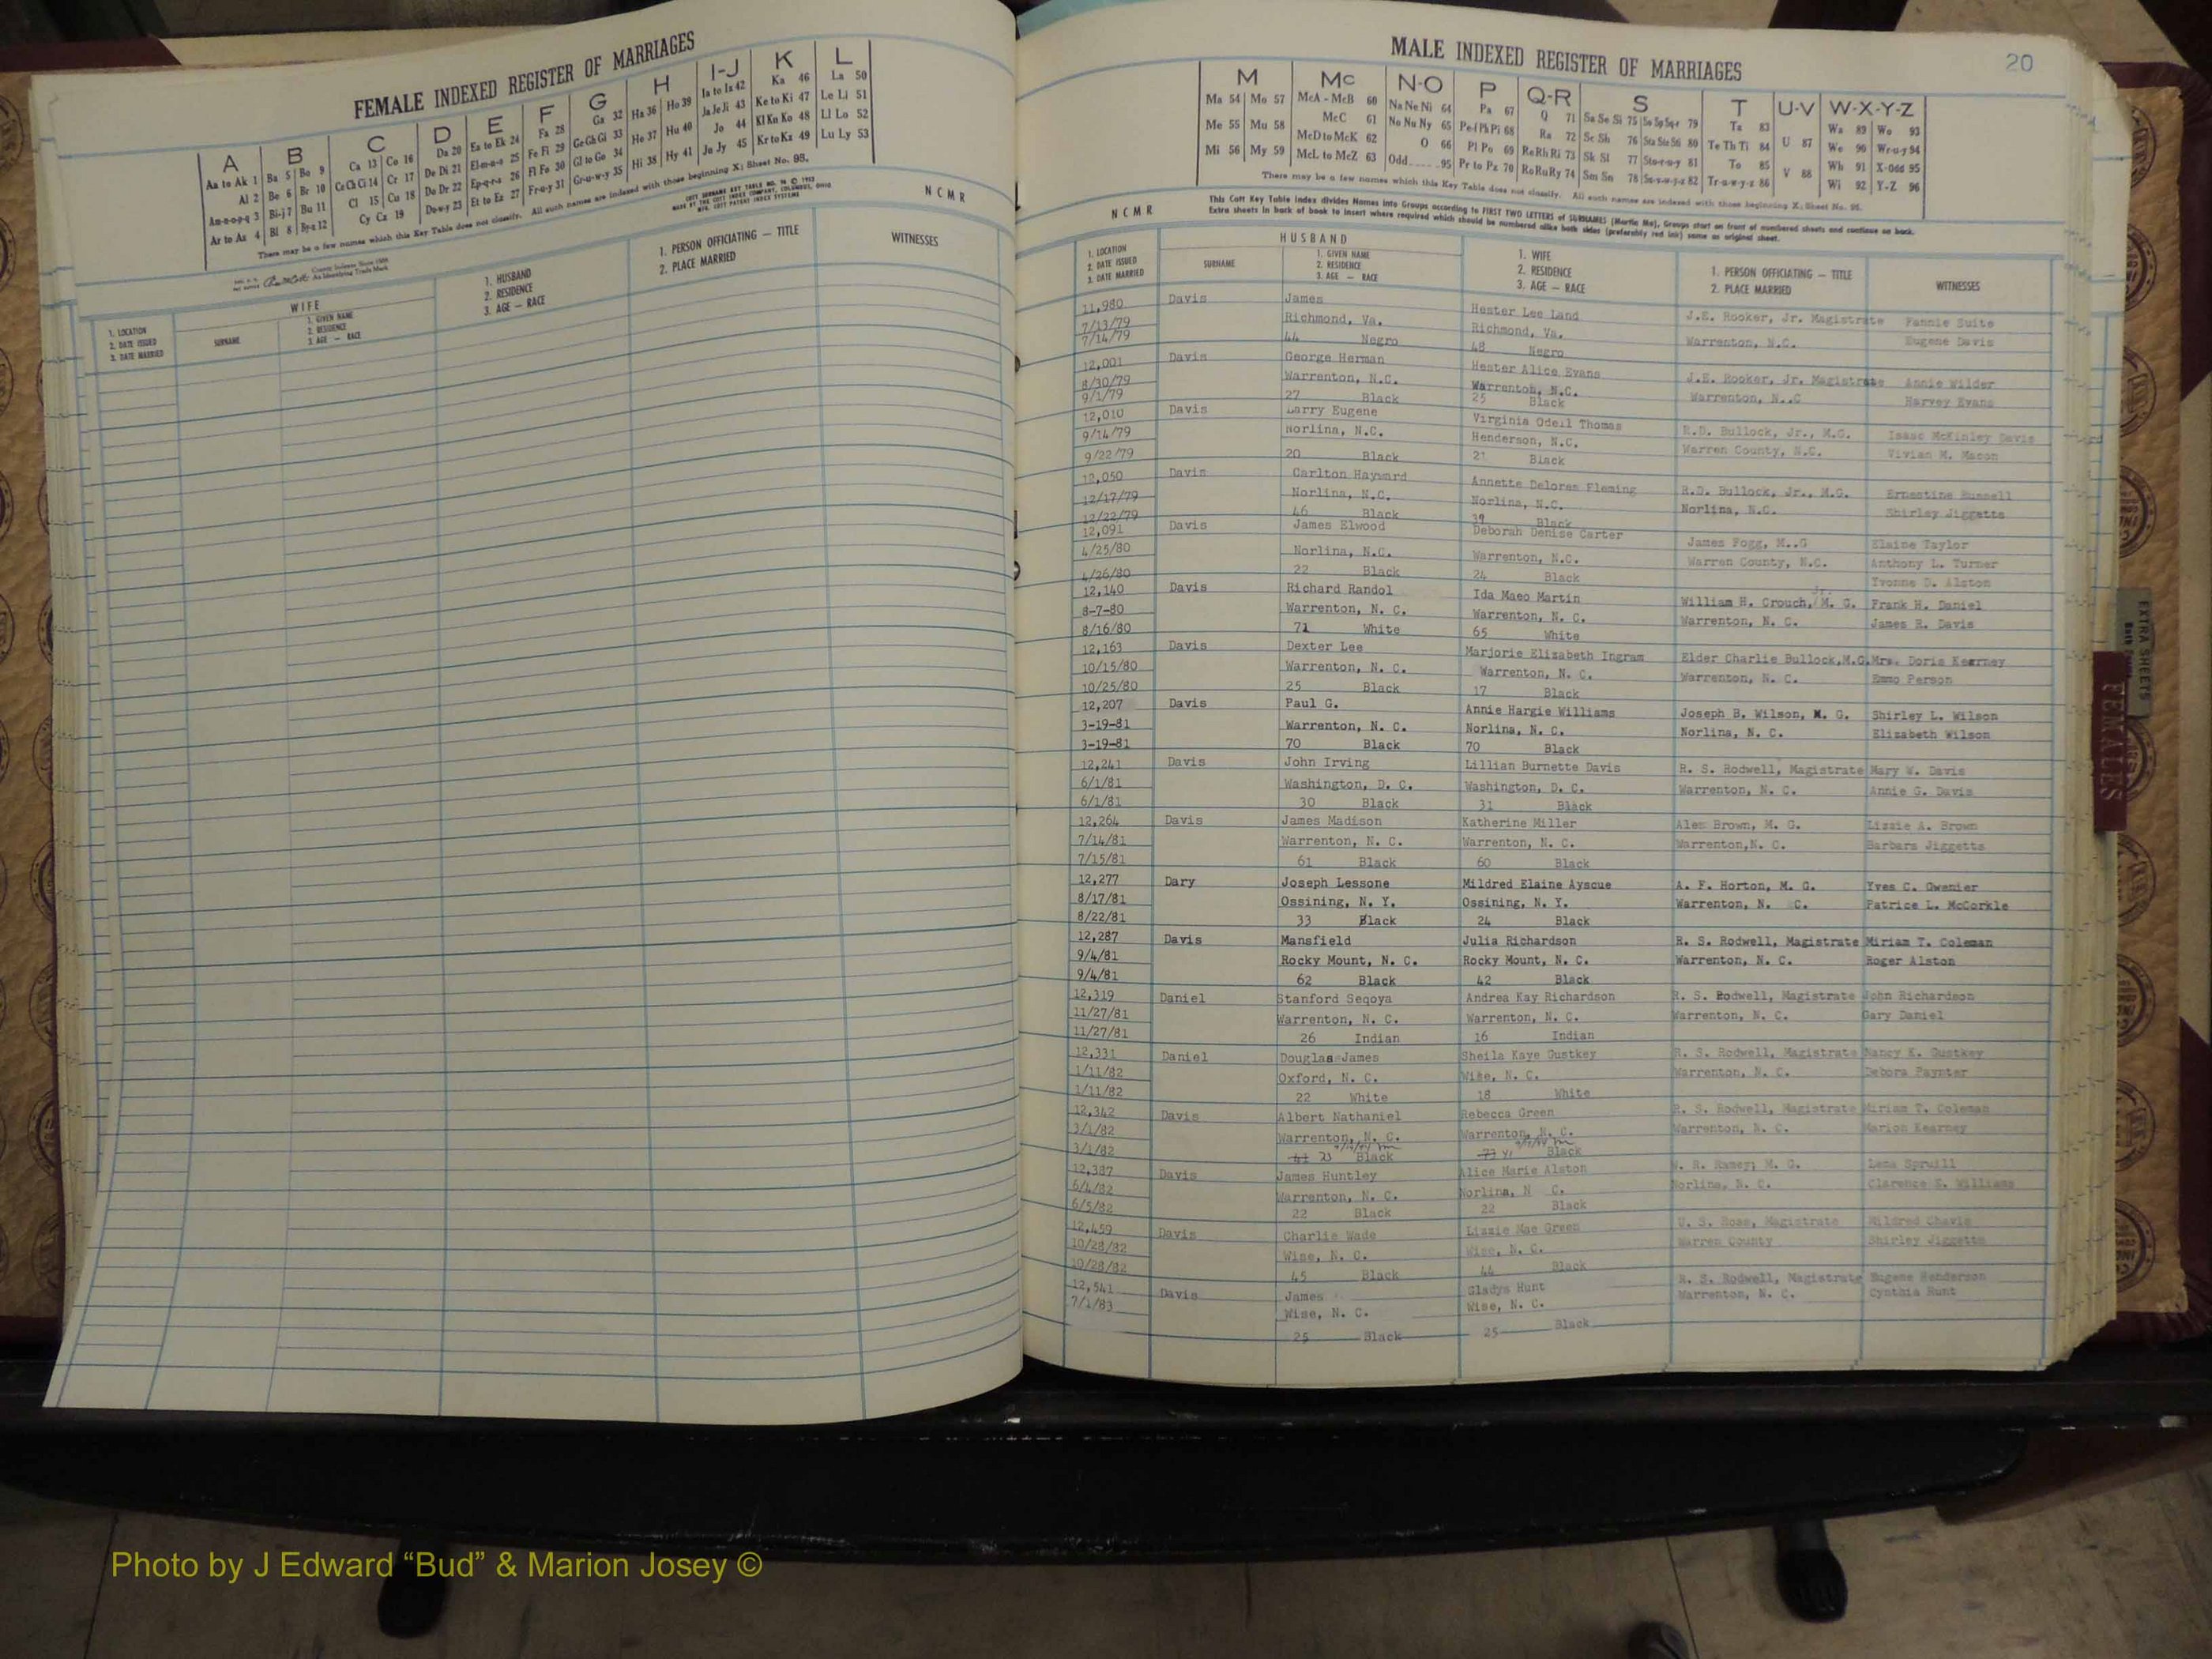 FEMALE INDEXED REGISTER OF MARRIAGES
A B C D E F G H I-J K L
Aa to Ak 1 Ba 5 Bo 9 Ca 13 Co 16 Da 20 Ea to Ek 24 Fa 28 Ga 32 Ha 36 Ho 39 Ia to Iz 42 Ka 46 La 50
Al 2 Be 6 Br 10 Ce Ch Ci 14 Cr 17 De Di 21 El-m-n-o 25 Fe Fi 29 Ge Gh Gi 33 He 37 Hu 40 Ja Je Ji 43 Ke to Ki 47 Le Li 51
Am-n-o-p-q 3 Bi-j 7 Bu 11 Cl 15 Cu 18 Do Dr 22 Ep-q-r-s 26 Fl Fo 30 Gl to Go 34 Hi 38 Hy 41 Jo 44 Kl Kn Ko 48 Ll Lo 52
Ar to Az 4 Bl 8 By-z 12 Cy Cz 19 Du-w-y 23 Et to Ez 27 Fr-u-y 31 Gr-u-w-y 35 Ju Jy 45 Kr to Kz 49 Lu Ly 53
There may be a few names which this Key Table does not classify. All such names are indexed with those beginning X; Sheet No. 95.
N C M R
WIFE
1. LOCATION
2. DATE ISSUED
3. DATE MARRIED
SURNAME
1. GIVEN NAME
2. RESIDENCE
3. AGE — RACE
1. HUSBAND
2. RESIDENCE
3. AGE — RACE
1. PERSON OFFICIATING — TITLE
2. PLACE MARRIED
WITNESSES
MALE INDEXED REGISTER OF MARRIAGES
20
M Mc N-O P Q-R S T U-V W-X-Y-Z
Ma 54 Mo 57 McA - McB 60 Na Ne Ni 64 Pa 67 Q 71 Sa Se Si 75 So Sp Sq-r 79 Ta 83 Wa 89 Wo 93
Me 55 Mu 58 McC 61 No Nu Ny 65 Pe-f Ph Pi 68 Ra 72 Sc Sh 76 Sta Ste Sti 80 Te Th Ti 84 U 87 We 90 Wr-u-y 94
Mi 56 My 59 McD to McK 62 O 66 Pl Po 69 Re Rh Ri 73 Sk Sl 77 Sto-r-u-y 81 To 85 V 88 Wh 91 X-Odd 95
McL to McZ 63 Odd.....95 Pr to Pz 70 Ro Ru Ry 74 Sm Sn 78 Su-v-w-y-z 82 Tr-u-w-y-z 86 Wi 92 Y-Z 96
There may be a few names which this Key Table does not classify. All such names are indexed with those beginning X; Sheet No. 95.
N C M R
This Cott Key Table Index divides Names into Groups according to FIRST TWO LETTERS of SURNAMES (Martin Ma), Groups start on front of numbered sheets and continue on back.
Extra sheets in back of book to insert where required which should be numbered alike both sides (preferably red ink) same as original sheet.
HUSBAND
1. LOCATION
2. DATE ISSUED
3. DATE MARRIED
SURNAME
1. GIVEN NAME
2. RESIDENCE
3. AGE — RACE
1. WIFE
2. RESIDENCE
3. AGE — RACE
1. PERSON OFFICIATING — TITLE
2. PLACE MARRIED
WITNESSES
11,980 Davis James Hester Lee Land J.E. Rooker, Jr. Magistrate Fannie Suite
7/13/79 Richmond, Va. Richmond, Va. Warrenton, N.C. Eugene Davis
7/14/79 44 Negro 48 Negro
12,001 Davis George Herman Hester Alice Evans J.E. Rooker, Jr. Magistrate Annie Wilder
8/30/79 Warrenton, N.C. Warrenton, N.C. Warrenton, N..C Harvey Evans
9/1/79 27 Black 25 Black
12,010 Davis Larry Eugene Virginia Odell Thomas R.D. Bullock, Jr., M.G. Isaac McKinley Davis
9/14/79 Norlina, N.C. Henderson, N.C. Warren County, N.C. Vivian M. Mason
9/22/79 20 Black 21 Black
12,050 Davis Carlton Hayward Annette Delores Fleming R.D. Bullock, Jr., M.G. Ernestine Russell
12/17/79 Norlina, N.C. Norlina, N.C. Norlina, N.C. Shirley Jiggetts
12/22/79 46 Black 39 Black
12,091 Davis James Elwood Deborah Denise Carter James Fogg, M..G Elaine Taylor
4/25/80 Norlina, N.C. Warrenton, N.C. Warren County, N.C. Anthony L. Turner
4/26/80 22 Black 24 Black Yvonne D. Alston
12,140 Davis Richard Randol Ida Maeo Martin William H. Crouch, Jr. M. G. Frank H. Daniel
8-7-80 Warrenton, N. C. Warrenton, N. C. Warrenton, N. C. James R. Davis
8/16/80 71 White 65 White
12,163 Davis Dexter Lee Marjorie Elizabeth Ingram Elder Charlie Bullock,M.G. Mrs. Doris Kearney
10/15/80 Warrenton, N. C. Warrenton, N. C. Warrenton, N. C. Emmo Person
10/25/80 25 Black 17 Black
12,207 Davis Paul G. Annie Hargie Williams Joseph B. Wilson, M. G. Shirley L. Wilson
3-19-81 Warrenton, N. C. Norlina, N. C. Norlina, N. C. Elizabeth Wilson
3-19-81 70 Black 70 Black
12,241 Davis John Irving Lillian Burnette Davis R. S. Rodwell, Magistrate Mary W. Davis
6/1/81 Washington, D. C. Washington, D. C. Warrenton, N. C. Annie G. Davis
6/1/81 30 Black 31 Black
12,264 Davis James Madison Katherine Miller Alex Brown, M. G. Lizzie A. Brown
7/14/81 Warrenton, N. C. Warrenton, N. C. Warrenton,N. C. Barbara Jiggetts
7/15/81 61 Black 60 Black
12,277 Dary Joseph Lessone Mildred Elaine Ayscue A. F. Horton, M. G. Yves C. Gwenier
8/17/81 Ossining, N. Y. Ossining, N. Y. Warrenton, N. C. Patrice L. McCorkle
8/22/81 33 Black 24 Black
12,287 Davis Mansfield Julia Richardson R. S. Rodwell, Magistrate Miriam T. Coleman
9/4/81 Rocky Mount, N. C. Rocky Mount, N. C. Warrenton, N. C. Roger Alston
9/4/81 62 Black 42 Black
12,319 Daniel Stanford Seqoya Andrea Kay Richardson R. S. Rodwell, Magistrate John Richardson
11/27/81 Warrenton, N. C. Warrenton, N. C. Warrenton, N. C. Gary Daniel
11/27/81 26 Indian 16 Indian
12,331 Daniel Douglas James Sheila Kaye Gustkey R. S. Rodwell, Magistrate Nancy K. Gustkey
1/11/82 Oxford, N. C. Wise, N. C. Warrenton, N. C. Debora Paynter
1/11/82 22 White 18 White
12,342 Davis Albert Nathaniel Rebecca Green R. S. Rodwell, Magistrate Miriam T. Coleman
3/1/82 Warrenton, N. C. Warrenton, N. C. Warrenton, N. C. Marion Kearney
3/1/82 Black Black
12,387 Davis James Huntley Alice Marie Alston W. R. Ramey; M. G. Lena Spruill
6/4/82 Warrenton, N. C. Norlina, N C. Norlina, N. C. Clarence E. Williams
6/5/82 22 Black 22 Black
12,459 Davis Charlie Wade Lizzie Mae Green U. S. Ross, Magistrate Mildred Chavis
10/28/82 Wise, N. C. Wise, N. C. Warren County Shirley Jiggetts
10/28/82 45 Black 44 Black
12,541 Davis James Gladys Hunt R. S. Rodwell, Magistrate Eugene Henderson
7/1/83 Wise, N. C. Wise, N. C. Warrenton, N. C. Cynthia Hunt
25 Black 25 Black
EXTRA SHEETS
FEMALES
Photo by J Edward “Bud” & Marion Josey ©